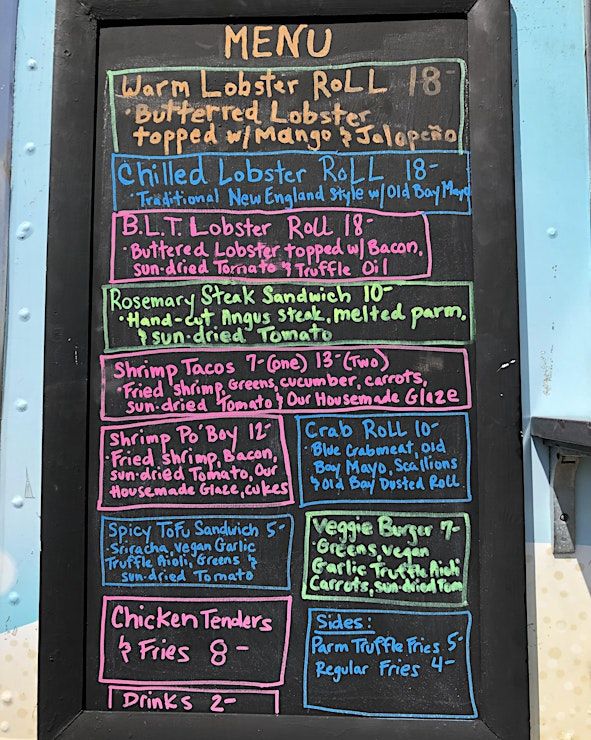 MENU
Warm Lobster RoLL 18-
·Butterred Lobster
topped w/Mango & Jalapeño
Chilled Lobster RoLL 18-
·Traditional New England Style w/Old Bay Mayo
B.L.T. Lobster Roll 18-
·Buttered Lobster topped w/Bacon,
sun-dried Tomato & Truffle Oil
Rosemary Steak Sandwich 10-
·Hand-cut Angus steak, melted parm,
& sun-dried Tomato
Shrimp Tacos 7-(one) 13-(Two)
·Fried shrimp, Greens, cucumber, carrots,
sun-dried Tomato & Our Housemade Glaze
Shrimp Po'Boy 12-
·Fried shrimp, Bacon,
sun-dried Tomato, Our
Housemade Glaze, cukes
Crab Roll 10-
·Blue Crabmeat, Old
Bay Mayo, Scallions
& Old Bay Dusted Roll
Spicy Tofu Sandwich 5-
·Sriracha, vegan Garlic
Truffle Aioli, Greens, &
sun-dried Tomato
Veggie Burger 7-
·Greens, vegan
Garlic Truffle Aioli
Carrots, sun-dried Tom
Chicken Tenders
& Fries 8-
Sides:
Parm Truffle Fries 5-
Regular Fries 4-
Drinks 2-